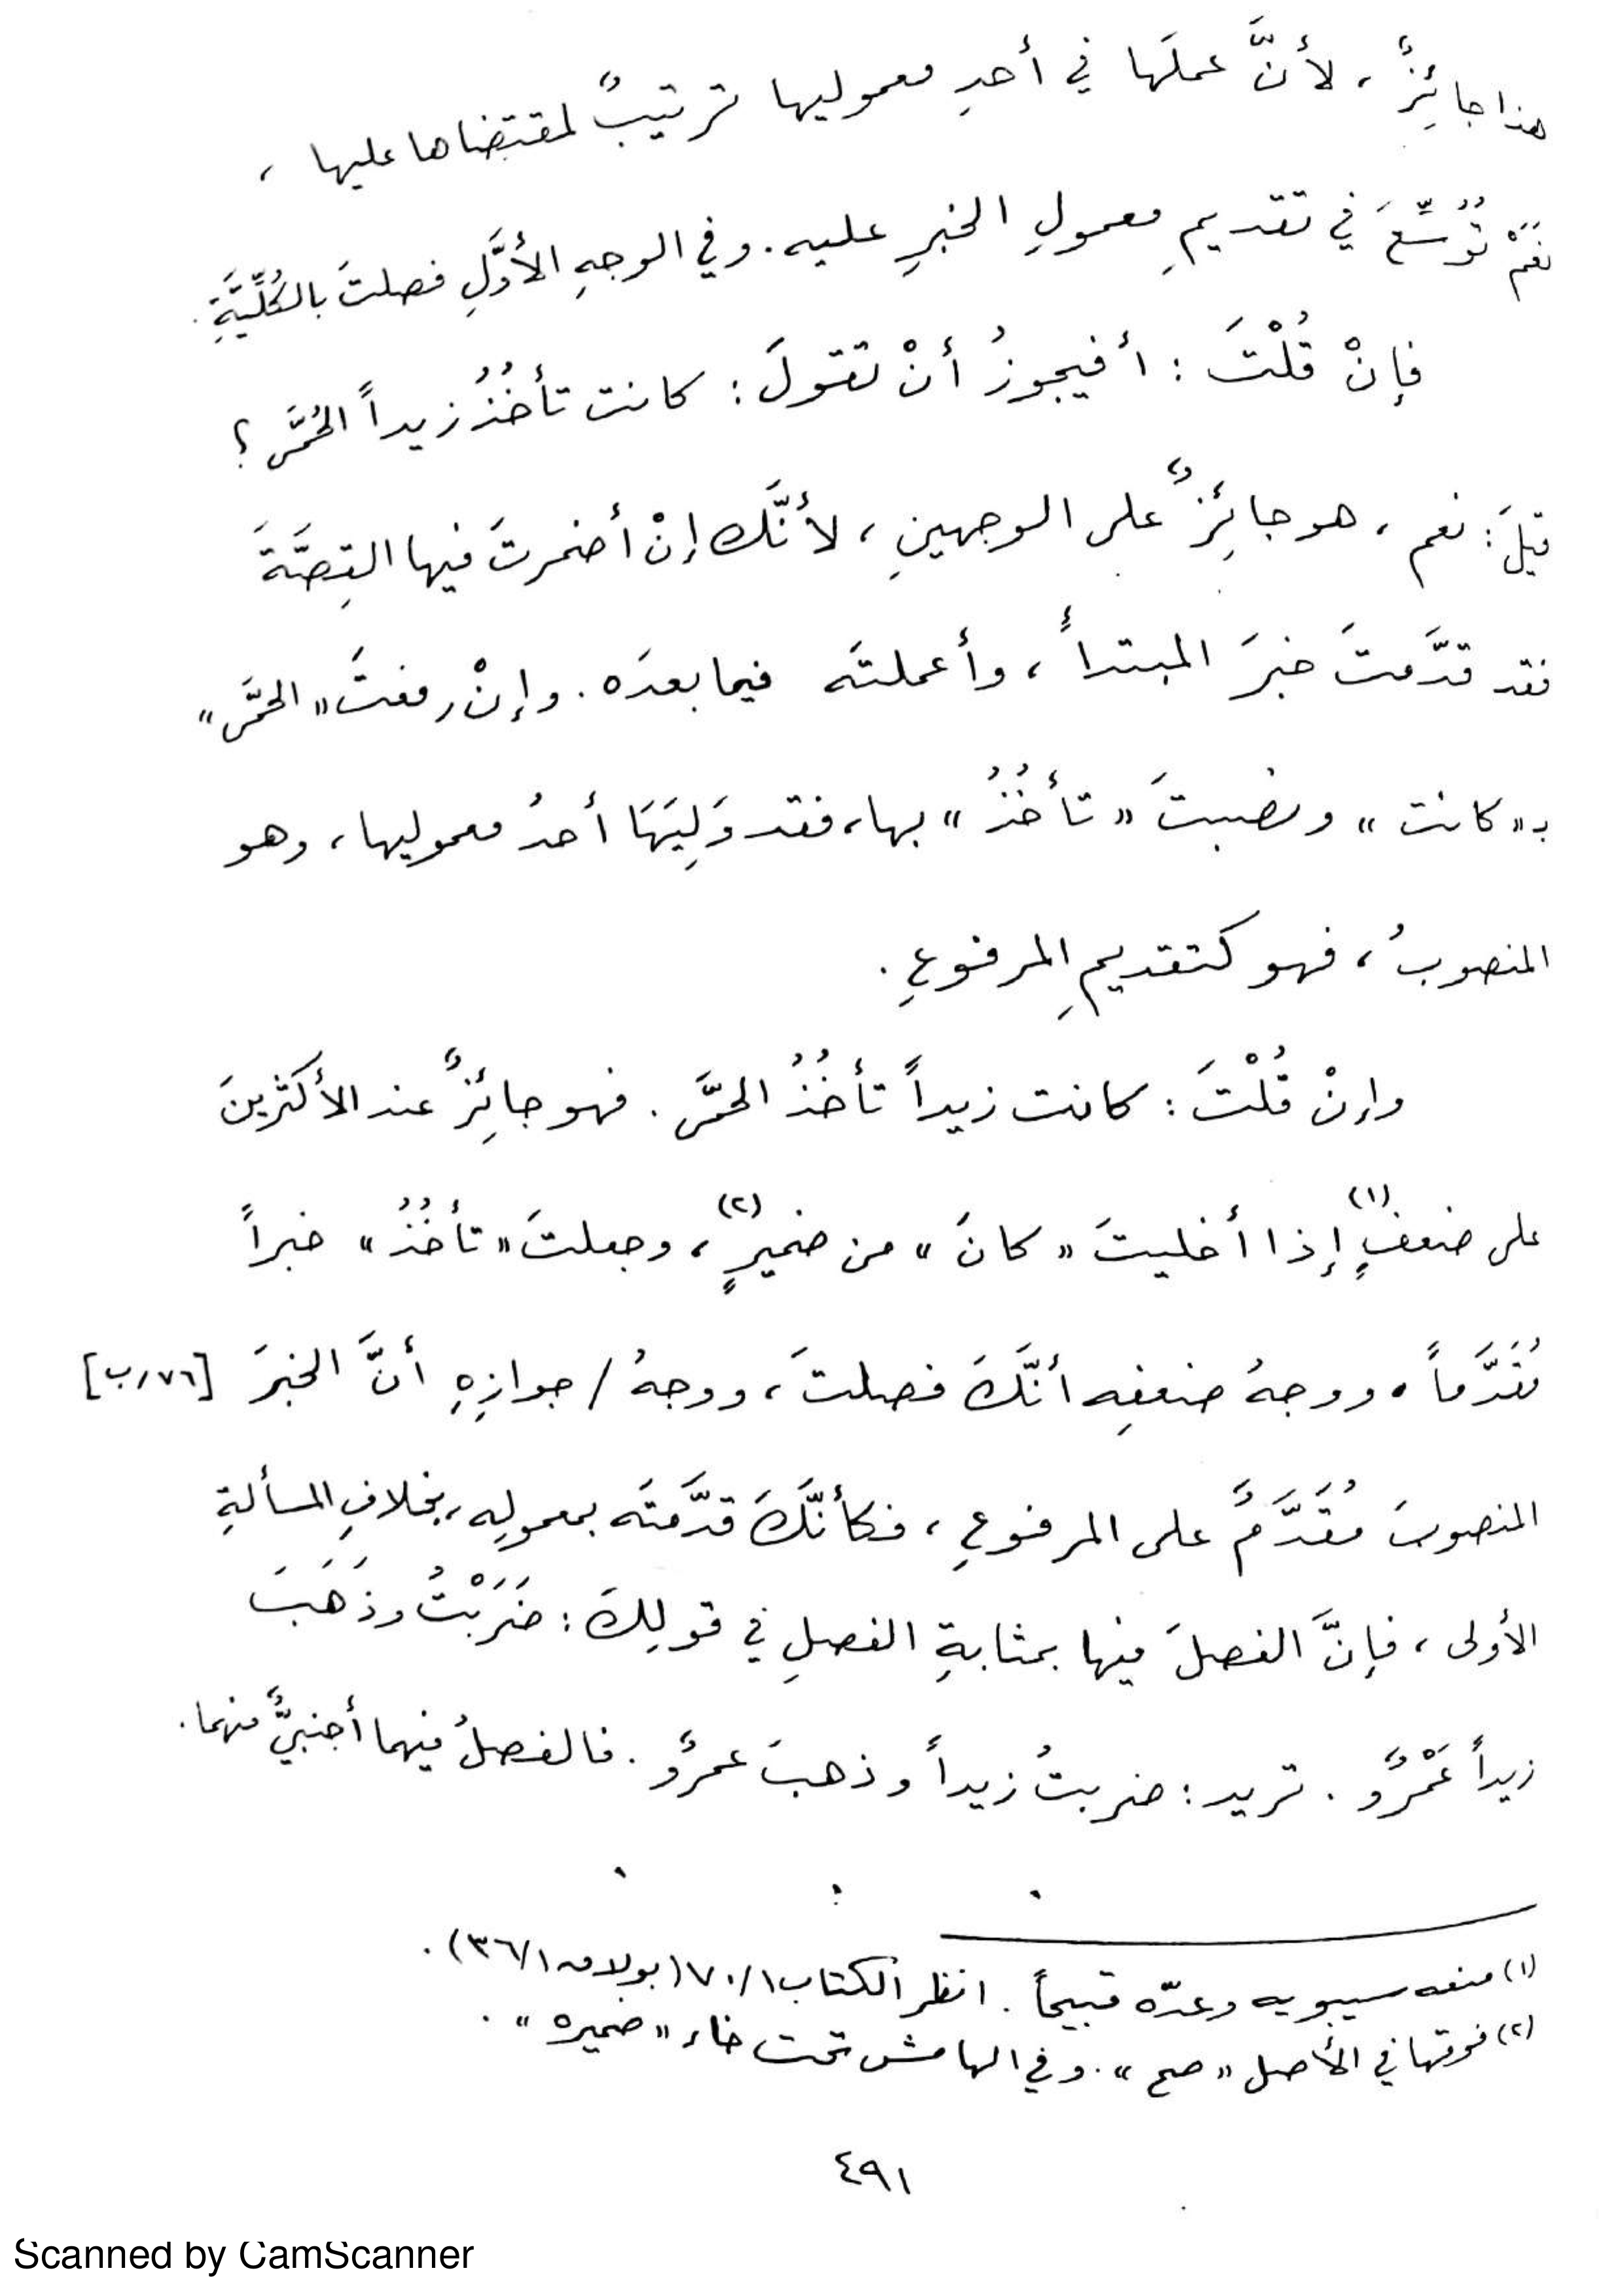 هذا جائِزٌ، لأنَّ عملَها في أحدِ معموليها ترتيبٌ لمقتضاها عليها،
نَعَمْ تُوُسِّعَ في تقديمِ معمولِ الخبرِ عليه. وفي الوجهِ الأوَّلِ فصلتَ بالكُلِّيَّةِ.
فإنْ قُلْتَ: أفيجوزُ أنْ تقولَ: كانت تأخُذُ زيداً الحُمَّى؟
قيلَ: نعم، هو جائِزٌ على الوجهينِ، لأنَّك إنْ أضمرتَ فيها القِصَّةَ
فقد قدَّمتَ خبرَ المبتدأ، وأعملتَه فيما بعدَه. وإنْ رفعتَ «الحمَّى»
بـ «كانت» ونصبتَ «تأخُذُ» بها، فقد وَلِيَهَا أحدُ معموليها، وهو
المنصوبُ، فهو كتقديمِ المرفوعِ.
وإنْ قُلْتَ: كانت زيداً تأخُذُ الحمَّى. فهو جائِزٌ عند الأكثرينَ
على ضعفٍ (١) إذا أخليتَ «كانَ» من ضميرٍ (٢)، وجعلتَ «تأخُذُ» خبراً
مُقَدَّماً. ووجهُ ضعفِه أنَّكَ فصلتَ، ووجهُ / جوازِهِ أنَّ الخبرَ [٧٦/ب]
المنصوبَ مُقَدَّمٌ على المرفوعِ، فكأنَّكَ قدَّمتَه بمعمولِه، بخلافِ المسألةِ
الأولى، فإنَّ الفصلَ فيها بمثابةِ الفصلِ في قولِكَ: ضَرَبْتُ وذَهَبَ
زيداً عَمْرٌو. تريد: ضربتُ زيداً وذهبَ عمرٌو. فالفصلُ فيهما أجنبيٌّ منهما.
(١) منعه سيبويه وعدّه قبيحاً. انظر الكتاب ٧٠/١ (بولاق ٣٦/١).
(٢) فوقها في الأصل «صح». وفي الهامش تحت خاء «ضميره».
٤٩١
Scanned by CamScanner